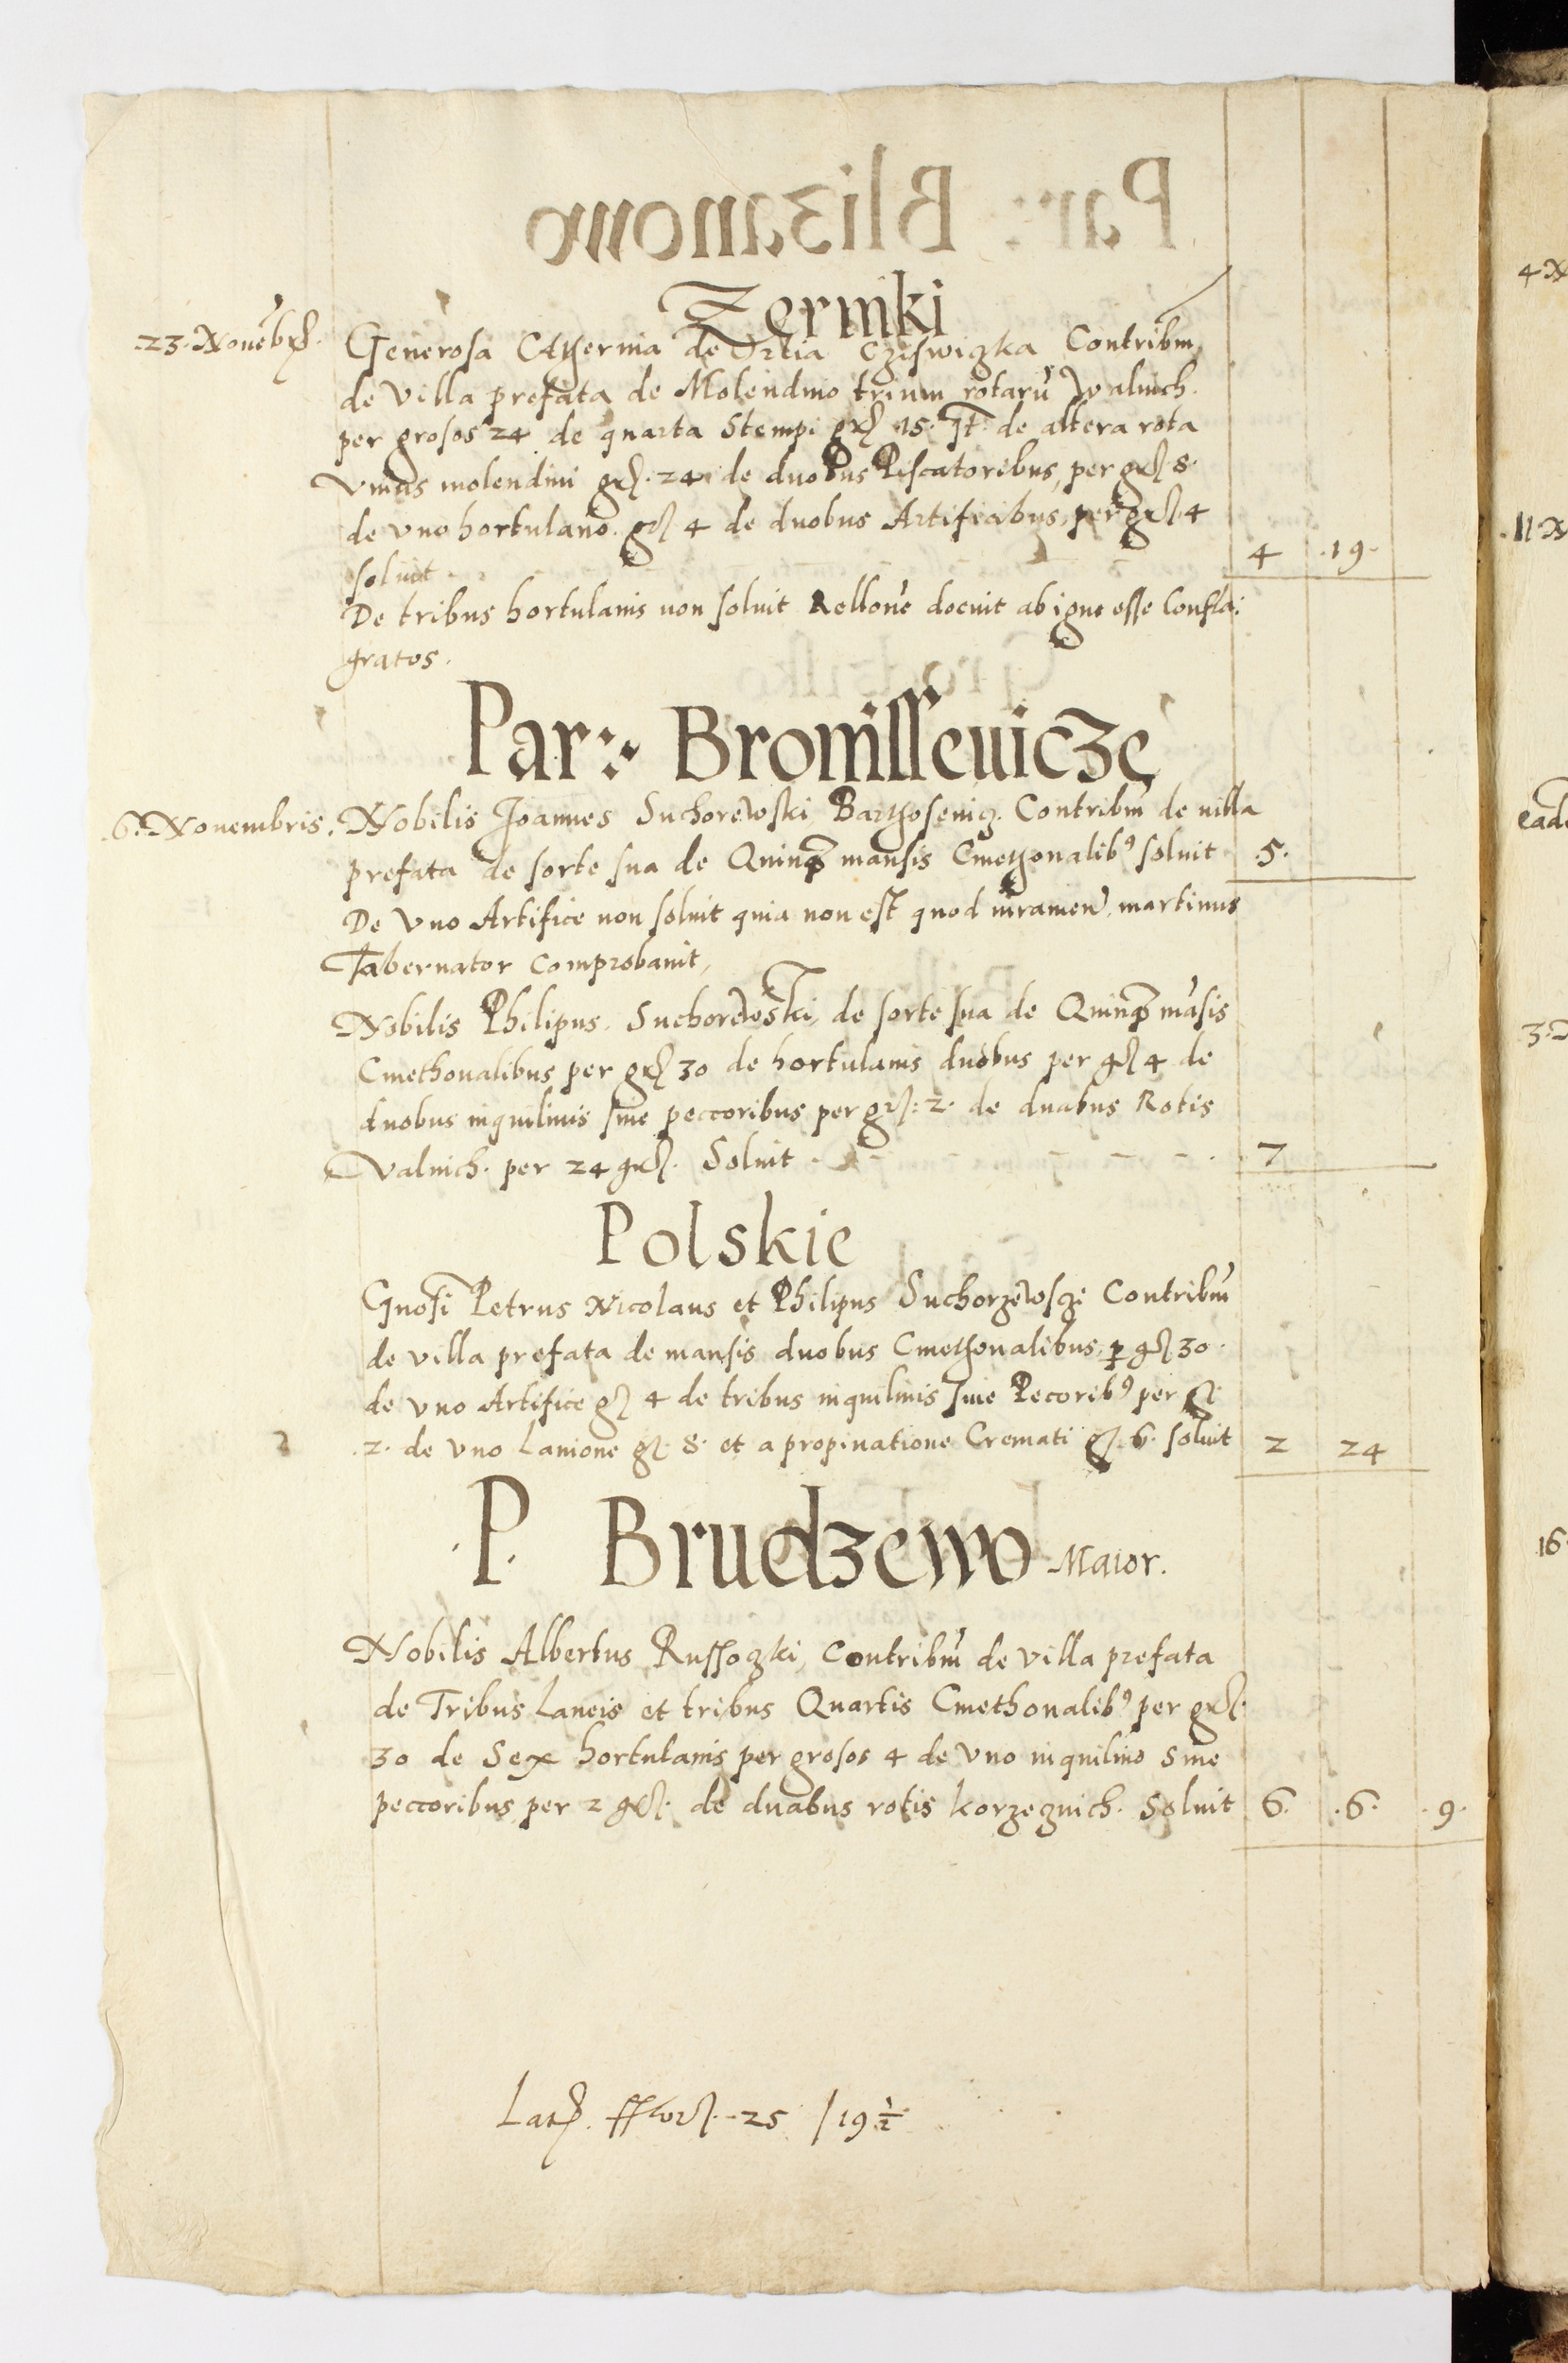 Zerniki
23. Nouēbr. Generosa Catherina de Ortia Cziswiczka Contribm
de villa prefata de Molendino trium rotarū Walnich.
per grosos 24 de quarta Stempi gr. 15. It. de altera rota
Vnius molendini gr. 24 de duobus Piscatoribus, per gr. 8.
de vno hortulano gr. 4 de duobus Artificibus, per gr. 4
soluit 4 .19.
De tribus hortulanis non soluit docuit ab igne esse Confla:
gratos.
Par: Bronissewicze
.6. Nouembris. Nobilis Joannes Suchorewski Barthosewicz. Contribm de uilla
prefata de sorte sua de Quinqȝ mansis Cmethonalibꝰ soluit .5.
De vno Artifice non soluit quia non est quod iuramen. martinus
Tabernator Comprobauit,
Nobilis Philipus Suchorewski, de sorte sua de Quinqȝ māsis
Cmethonalibus per gr. 30 de hortulanis duobus per gr. 4 de
duobus inquilinis sine peccoribus per gr: 2. de duabus Rotis
Valnich. per 24 gr. Soluit . 7
Polskie
Gnosi Petrus Nicolaus et Philipus Suchorzewsczi Contribm
de villa prefata de mansis duobus Cmethonalibus, ꝑ gr. 30.
de vno Artifice gr. 4 de tribus inquilinis sine Pecoribꝰ per gr.
.2. de vno Lanione gr. 8. et a propinatione Cremati gr. 6. soluit 2 24
.P. Brudzewo Maior.
Nobilis Albertus Russoczki, Contribm de villa prefata
de Tribus Laneis et tribus Quartis Cmethonalibꝰ per gr.
30 de Sex hortulanis per grosos 4 de vno inquilino Sine
peccoribus per 2 gr. de duabus rotis korzecznich. Soluit 6. .6. .9.
Lat. 25 / 19 1/2